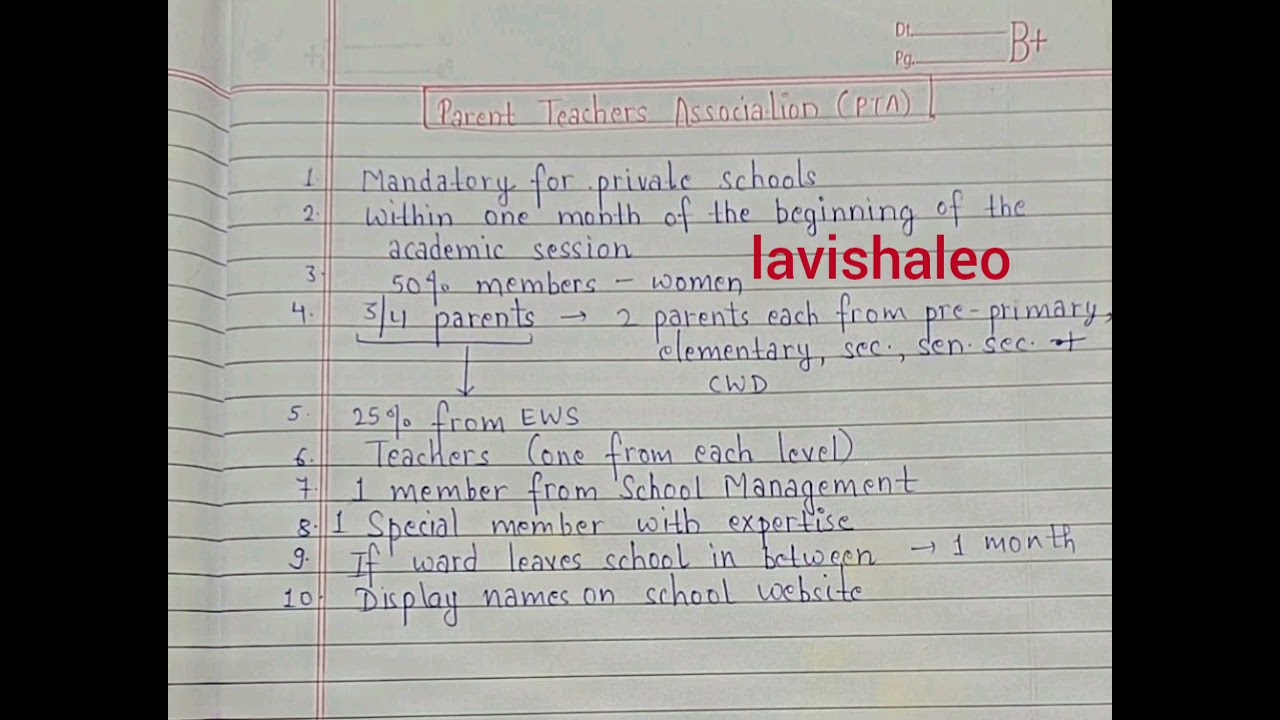 Dt.
Pg.
B+
Parent Teachers Association (PTA)
1. Mandatory for private schools
2. Within one month of the beginning of the
academic session
lavishaleo
3. 50% members - women
4. 3/4 parents → 2 parents each from pre-primary,
elementary, sec., sen. sec. +
CWD
5. 25% from EWS
6. Teachers (one from each level)
7. 1 member from School Management
8. 1 Special member with expertise
9. If ward leaves school in between → 1 month
10. Display names on school website